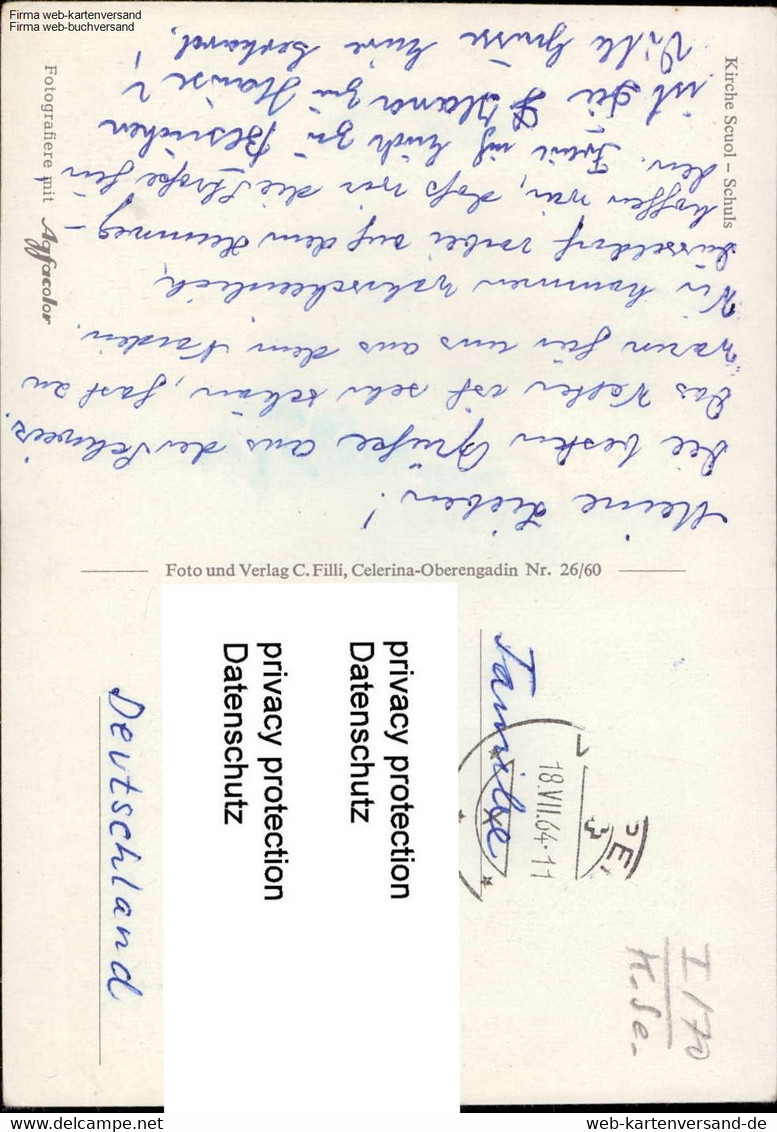 Firma web-kartenversand
Firma web-buchversand
Kirche Scuol – Schuls
Meine Lieben!
Die besten Grüße aus der Schweiz.
Das Wetter ist sehr schön, fast zu
warm für uns aus dem Norden.
Wir kommen wahrscheinlich,
Düsseldorf vorbei auf dem Heimweg –
hoffen wir, daß wir die Straße fin
den. Euch zu besuchen
ist die zu Hause?
Viele Grüsse Eure
Fotografiere mit Agfacolor
Foto und Verlag C. Filli, Celerina-Oberengadin Nr. 26/60
18.VII.64-11
Familie
privacy protection
Datenschutz
privacy protection
Datenschutz
Deutschland
I/70
K.Se-
web-kartenversand-de